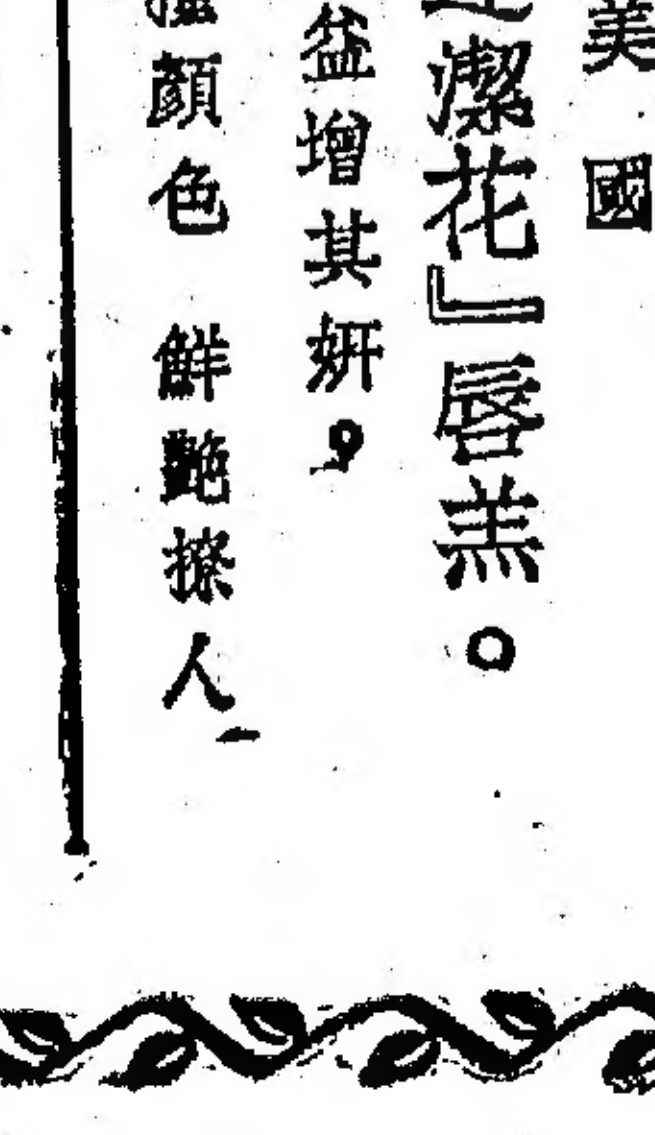 美國
潔花』唇羔。
益增其妍，
顏色 鮮艷撩人